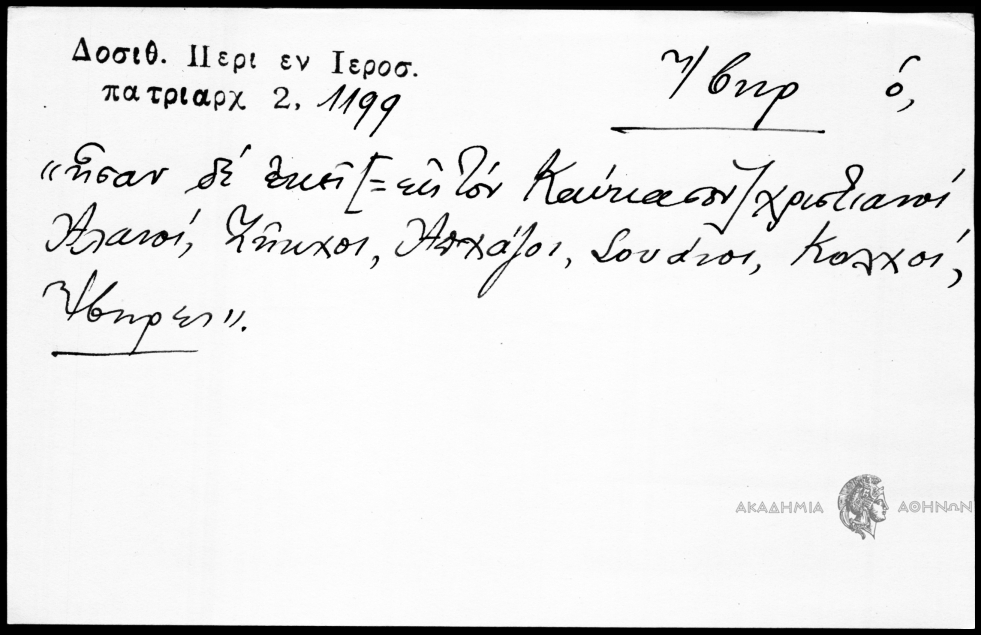 Δοσιθ. Περι εν Ιεροσ.
πατριαρχ 2, 1199
Ἴβηρ ὁ,
«ἦσαν δέ ἐκεῖ [= εἰς τόν Καύκασον] χριστιανοί
Ἀλανοί, Ζῆκχοι, Ἀπχάζοι, Σουάνοι, Κολχοί,
Ἴβηρες».
ΑΚΑΔΗΜΙΑ ΑΘΗΝΩΝ